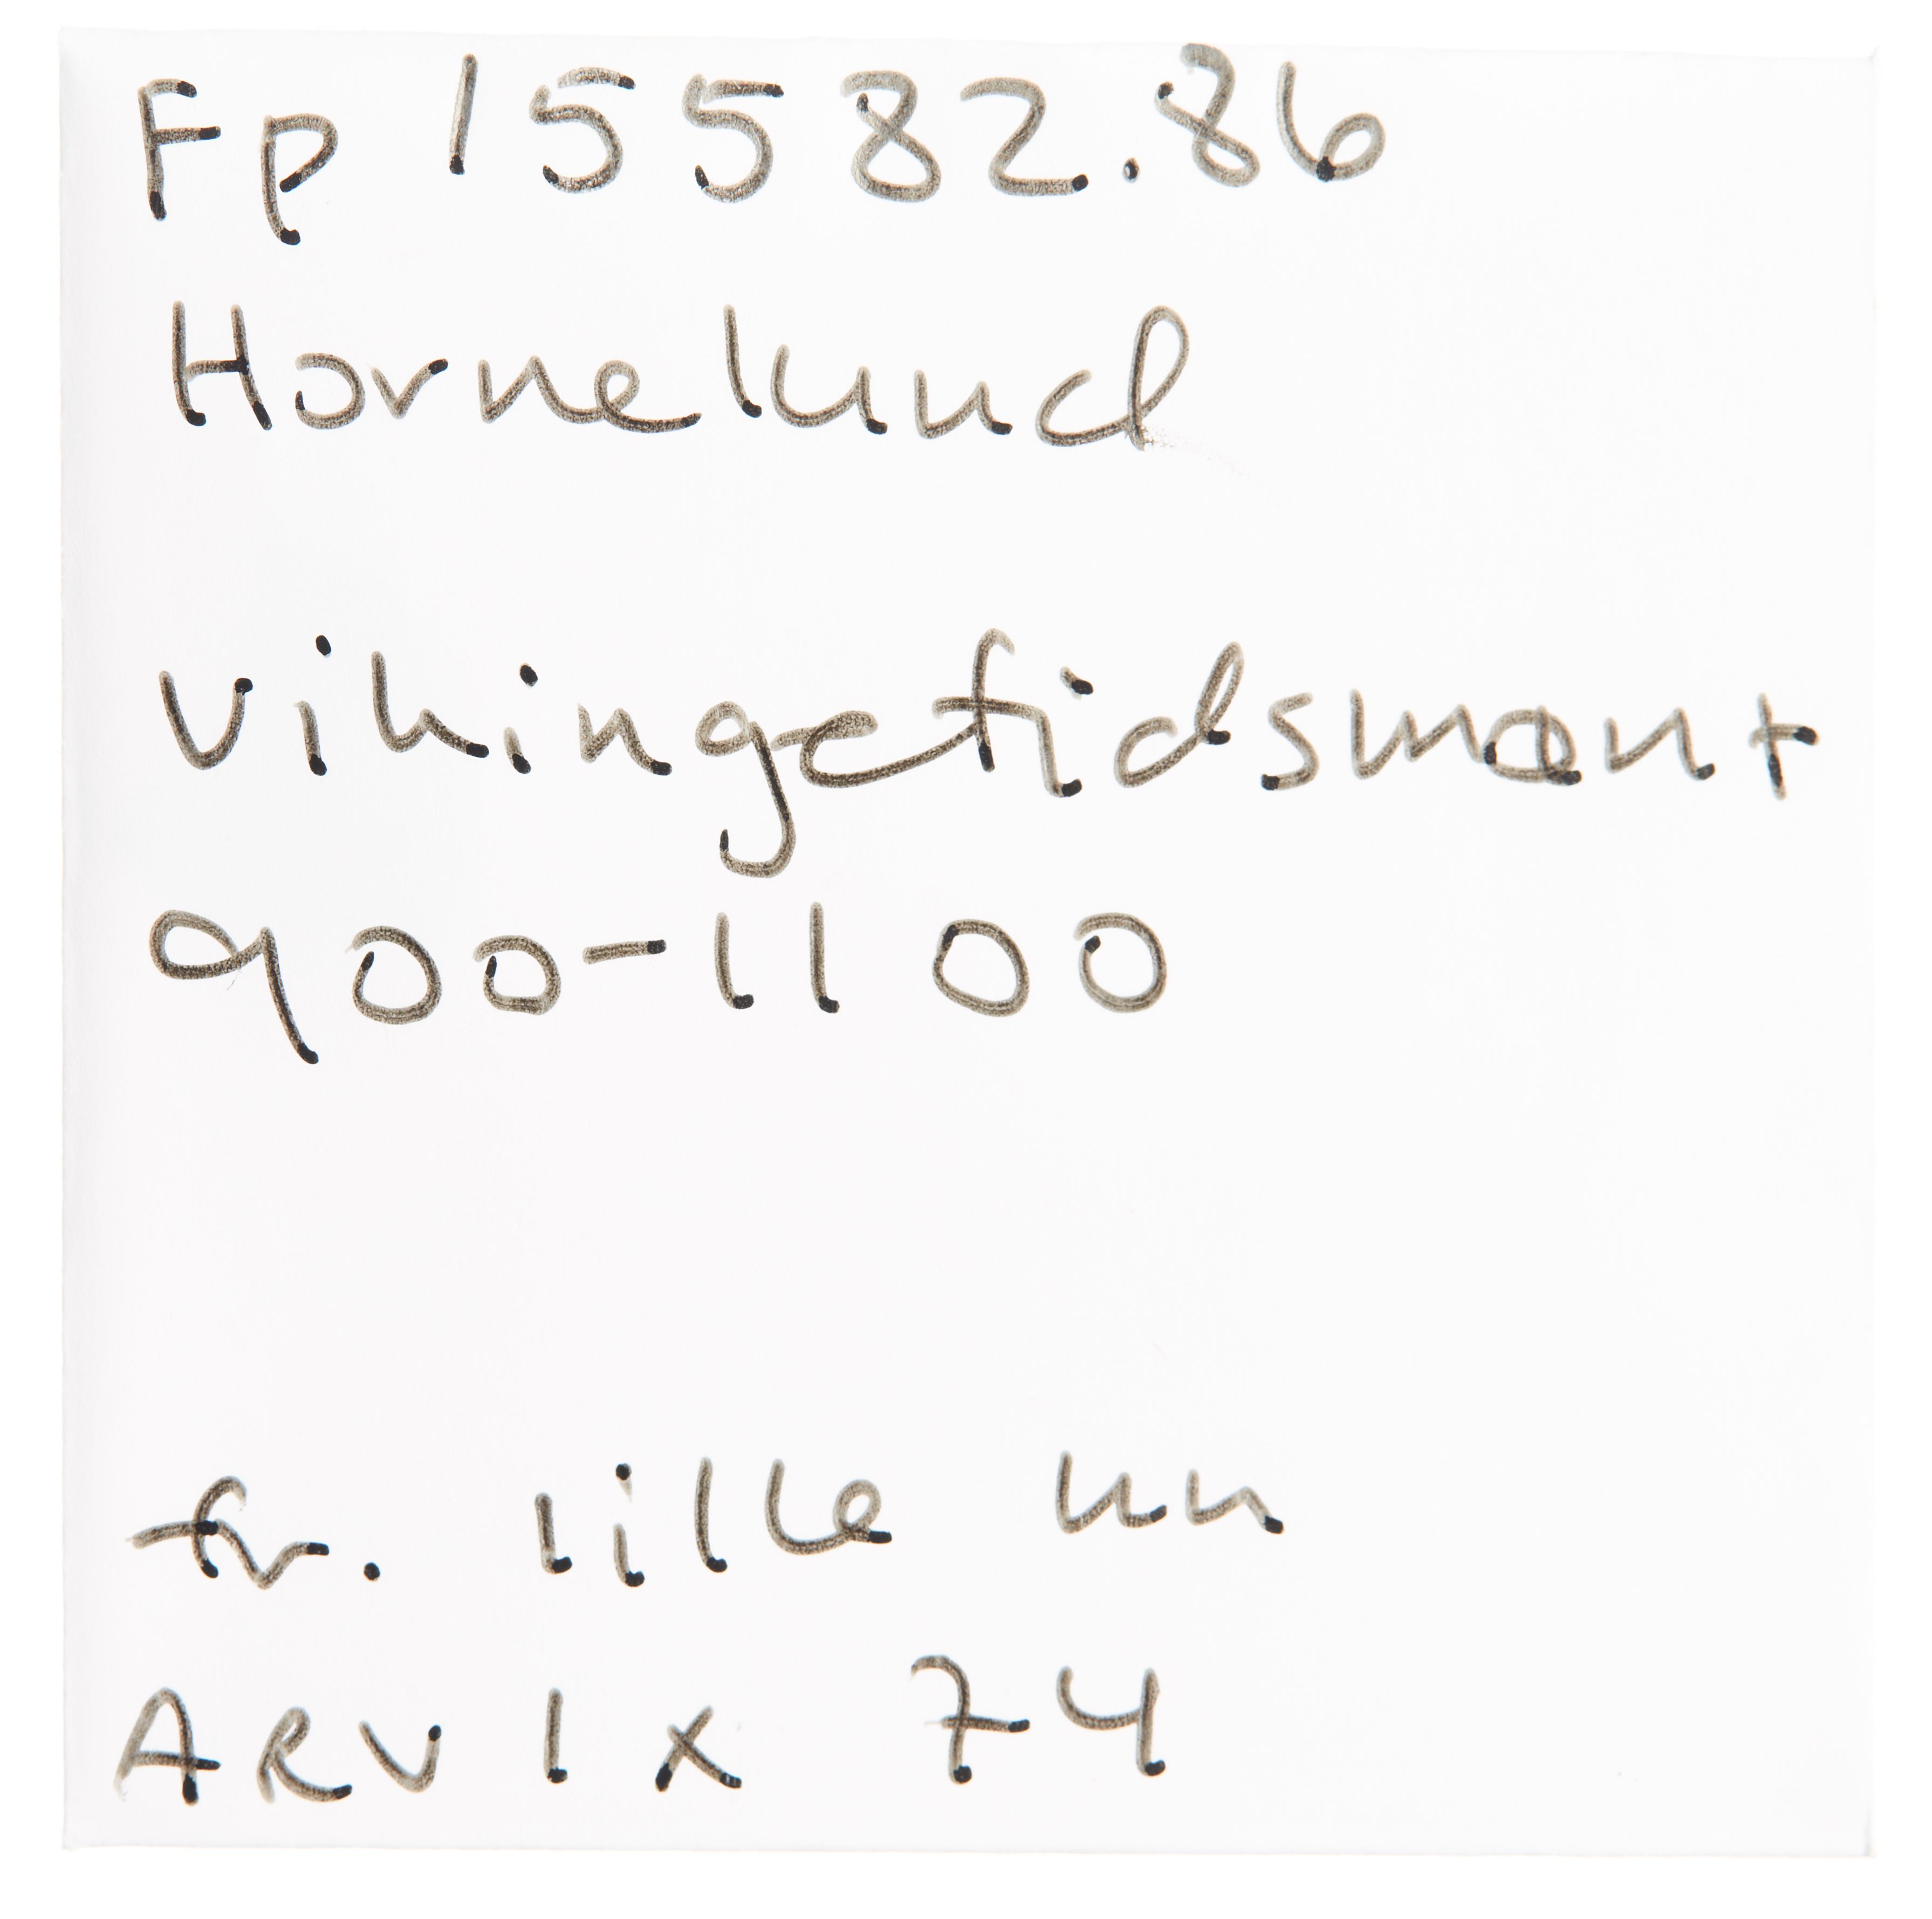 Fp 15582.86
Hornelund
Vikingetidsmønt
900-1100
fr. lille un
ARV 1x 74